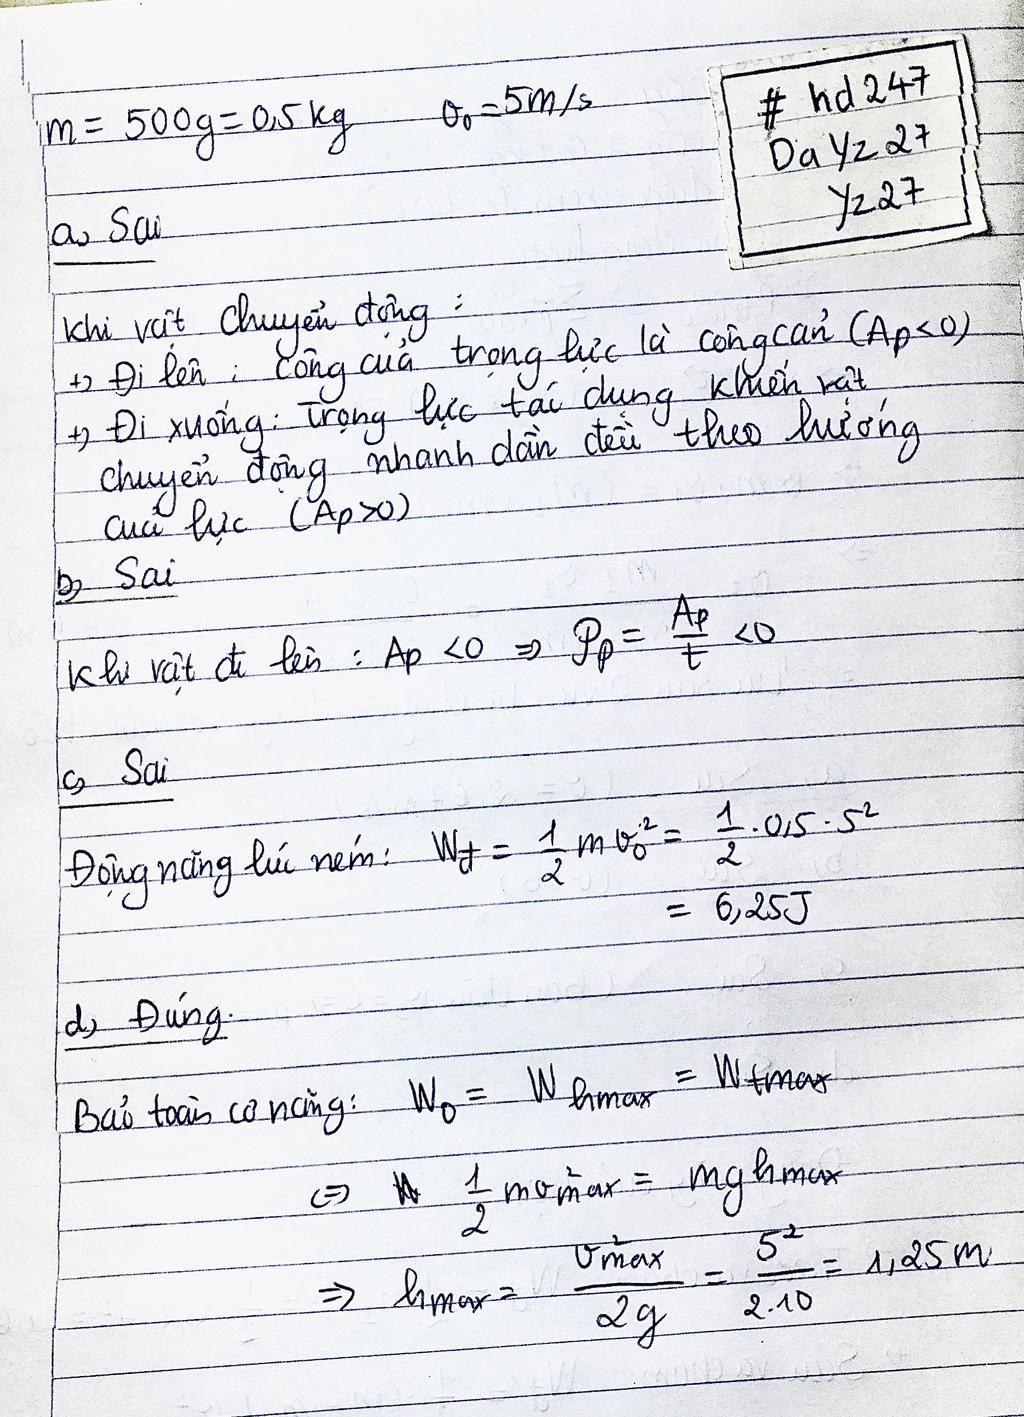 m = 500g = 0,5 kg v₀ = 5m/s
# hd247
Da Yz27
Yz27
a, Sai
Khi vật chuyển động :
+, Đi lên : công của trọng lực là công cản (Ap<0)
+, Đi xuống : Trọng lực tác dụng khiến vật
chuyển động nhanh dần đều theo hướng
của lực (Ap>0)
b, Sai
Khi vật đi lên : Ap <0 => 𝒫p = Ap/t <0
c, Sai
Động năng lúc ném : Wđ = 1/2 m v₀² = 1/2 . 0,5 . 5²
= 6,25J
d, Đúng.
Bảo toàn cơ năng : W₀ = Whmax = Wtmax
<=> 1/2 mv²max = mghmax
=> hmax = v²max/2g = 5²/2.10 = 1,25m